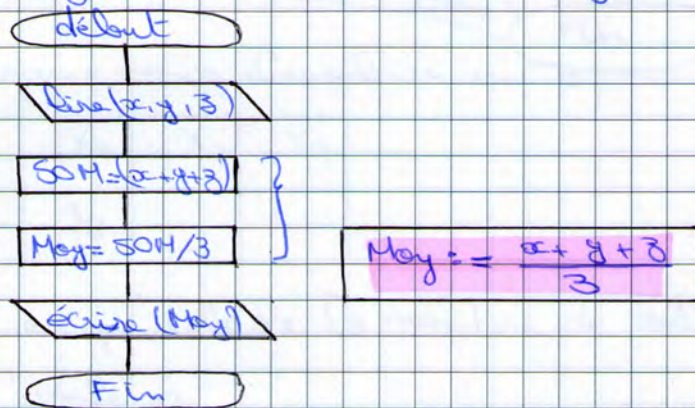 début
lire(x, y, z)
SOM=(x+y+z)
Moy= SOM/3
Moy := x + y + z
3
écrire (Moy)
Fin